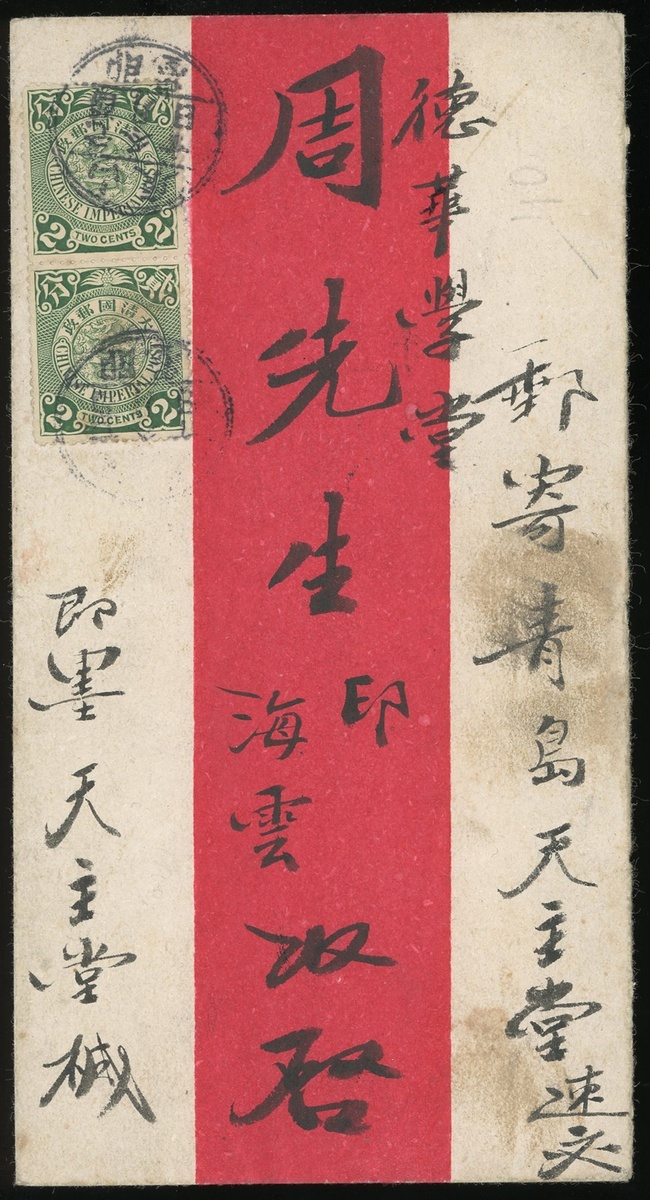 郵寄青島天主堂速交
德華學堂
周先生印海雲收啓
即墨天主堂椷
分 貳
大清國郵政
CHINESE IMPERIAL POST
2 TWO CENTS 2
分 貳
大清國郵政
CHINESE IMPERIAL POST
2 TWO CENTS 2